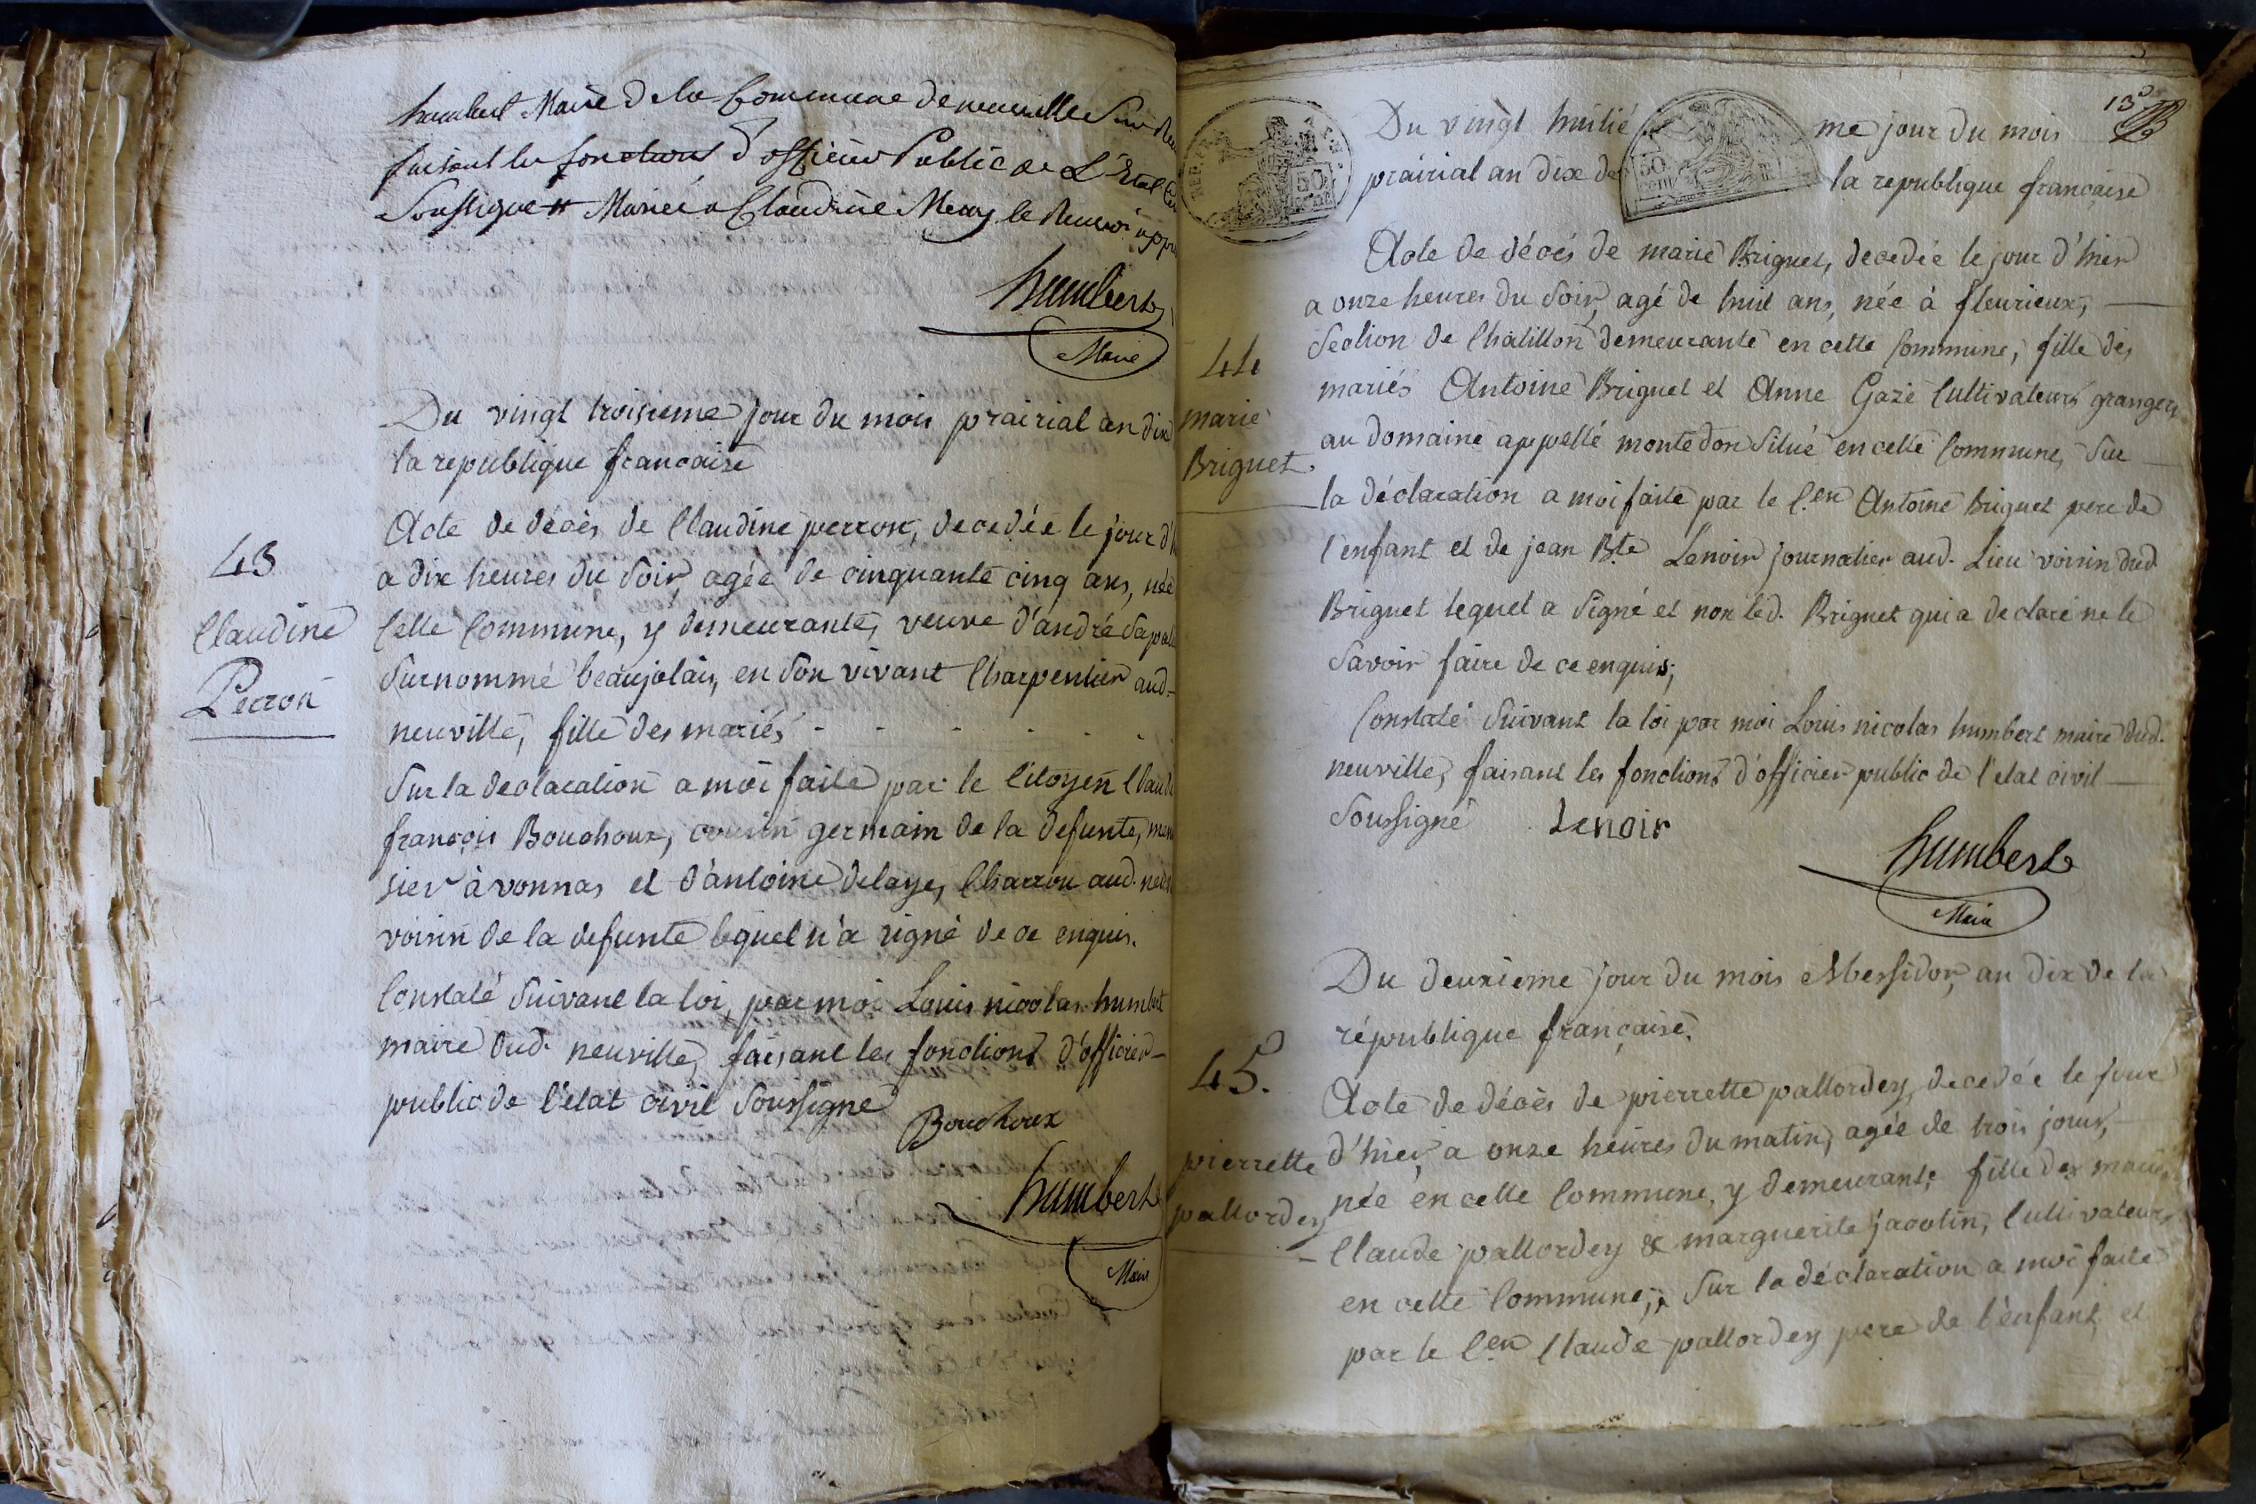 humbert Maire de la Commune de neuville Sur Ren
faisant les fonctions d'officier Public de L'Etat Civ
Soussigné # Mariée a Claudine Mercy le Renvoi appr
humbert
Maire
Du vingt troisieme jour du mois prairial an dix
la republique francaise
43
Claudine
Perron
Acte de décès de Claudine perron, decedée le jour d'h
a dix heures du Soir, agée de cinquante cinq ans, née
Cette Commune, y demeurante, veuve d'andré Sapal
Surnommé beaujolais, en Son vivant Charpentier aud.
neuville, fille des mariés - - - - -
Sur la declaration a moi faite par le Citoyen Claude
françois Bouchoux, cousin germain de la defunte, menu
sier à vonnas et d'antoine delaye, Charron aud. neuv
voisin de la defunte lequel n'a signé de ce enquis.
Constaté Suivant la loi, par moi Louis nicolas humbert
maire dud. neuville, faisant les fonctions d'officier
public de l'état civil Soussigné
Bouchoux
humbert
Maire
13
Du vingt huitié me jour du mois
prairial an dix de la republique française
REP. FRA.
50
50
cen
44
marie
Briguet.
Acte de décés de marie Briguet, decedée le jour d'hier
a onze heures du Soir, agé de huit ans, née à fleurieux,
Section de Chatillon demeurante en cette Commune, fille des
mariés Antoine Briguet et Anne Gaze Cultivateurs grangers
au domaine appellé montedon Situé en cette Commune, Sur
la déclaration a moi faite par le C.en Antoine briguet pere de
l'enfant et de jean B.te Lenoir journalier aud. Lieu voisin dud
Briguet lequel a Signé et non led. Briguet qui a declaré ne le
Savoir faire de ce enquis;
Constaté Suivant la loi par moi Louis nicolas humbert maire dud.
neuville, faisant les fonctions d'officier public de l'etat civil
Soussigné Lenoir
humbert
Maire
Du deuxieme jour du mois Messidor, an dix de la
république française.
45.
pierrette
pallordey
Acte de décès de pierrette pallordey, decedée le jour
d'hier, a onze heures du matin, agée de trois jours,
née en cette Commune, y demeurante, fille des mariés
Claude pallordey & marguerite jacotin, Cultivateurs
en cette Commune, Sur la déclaration a moi faite
par le C.en Claude pallordey pere de l'enfant, et